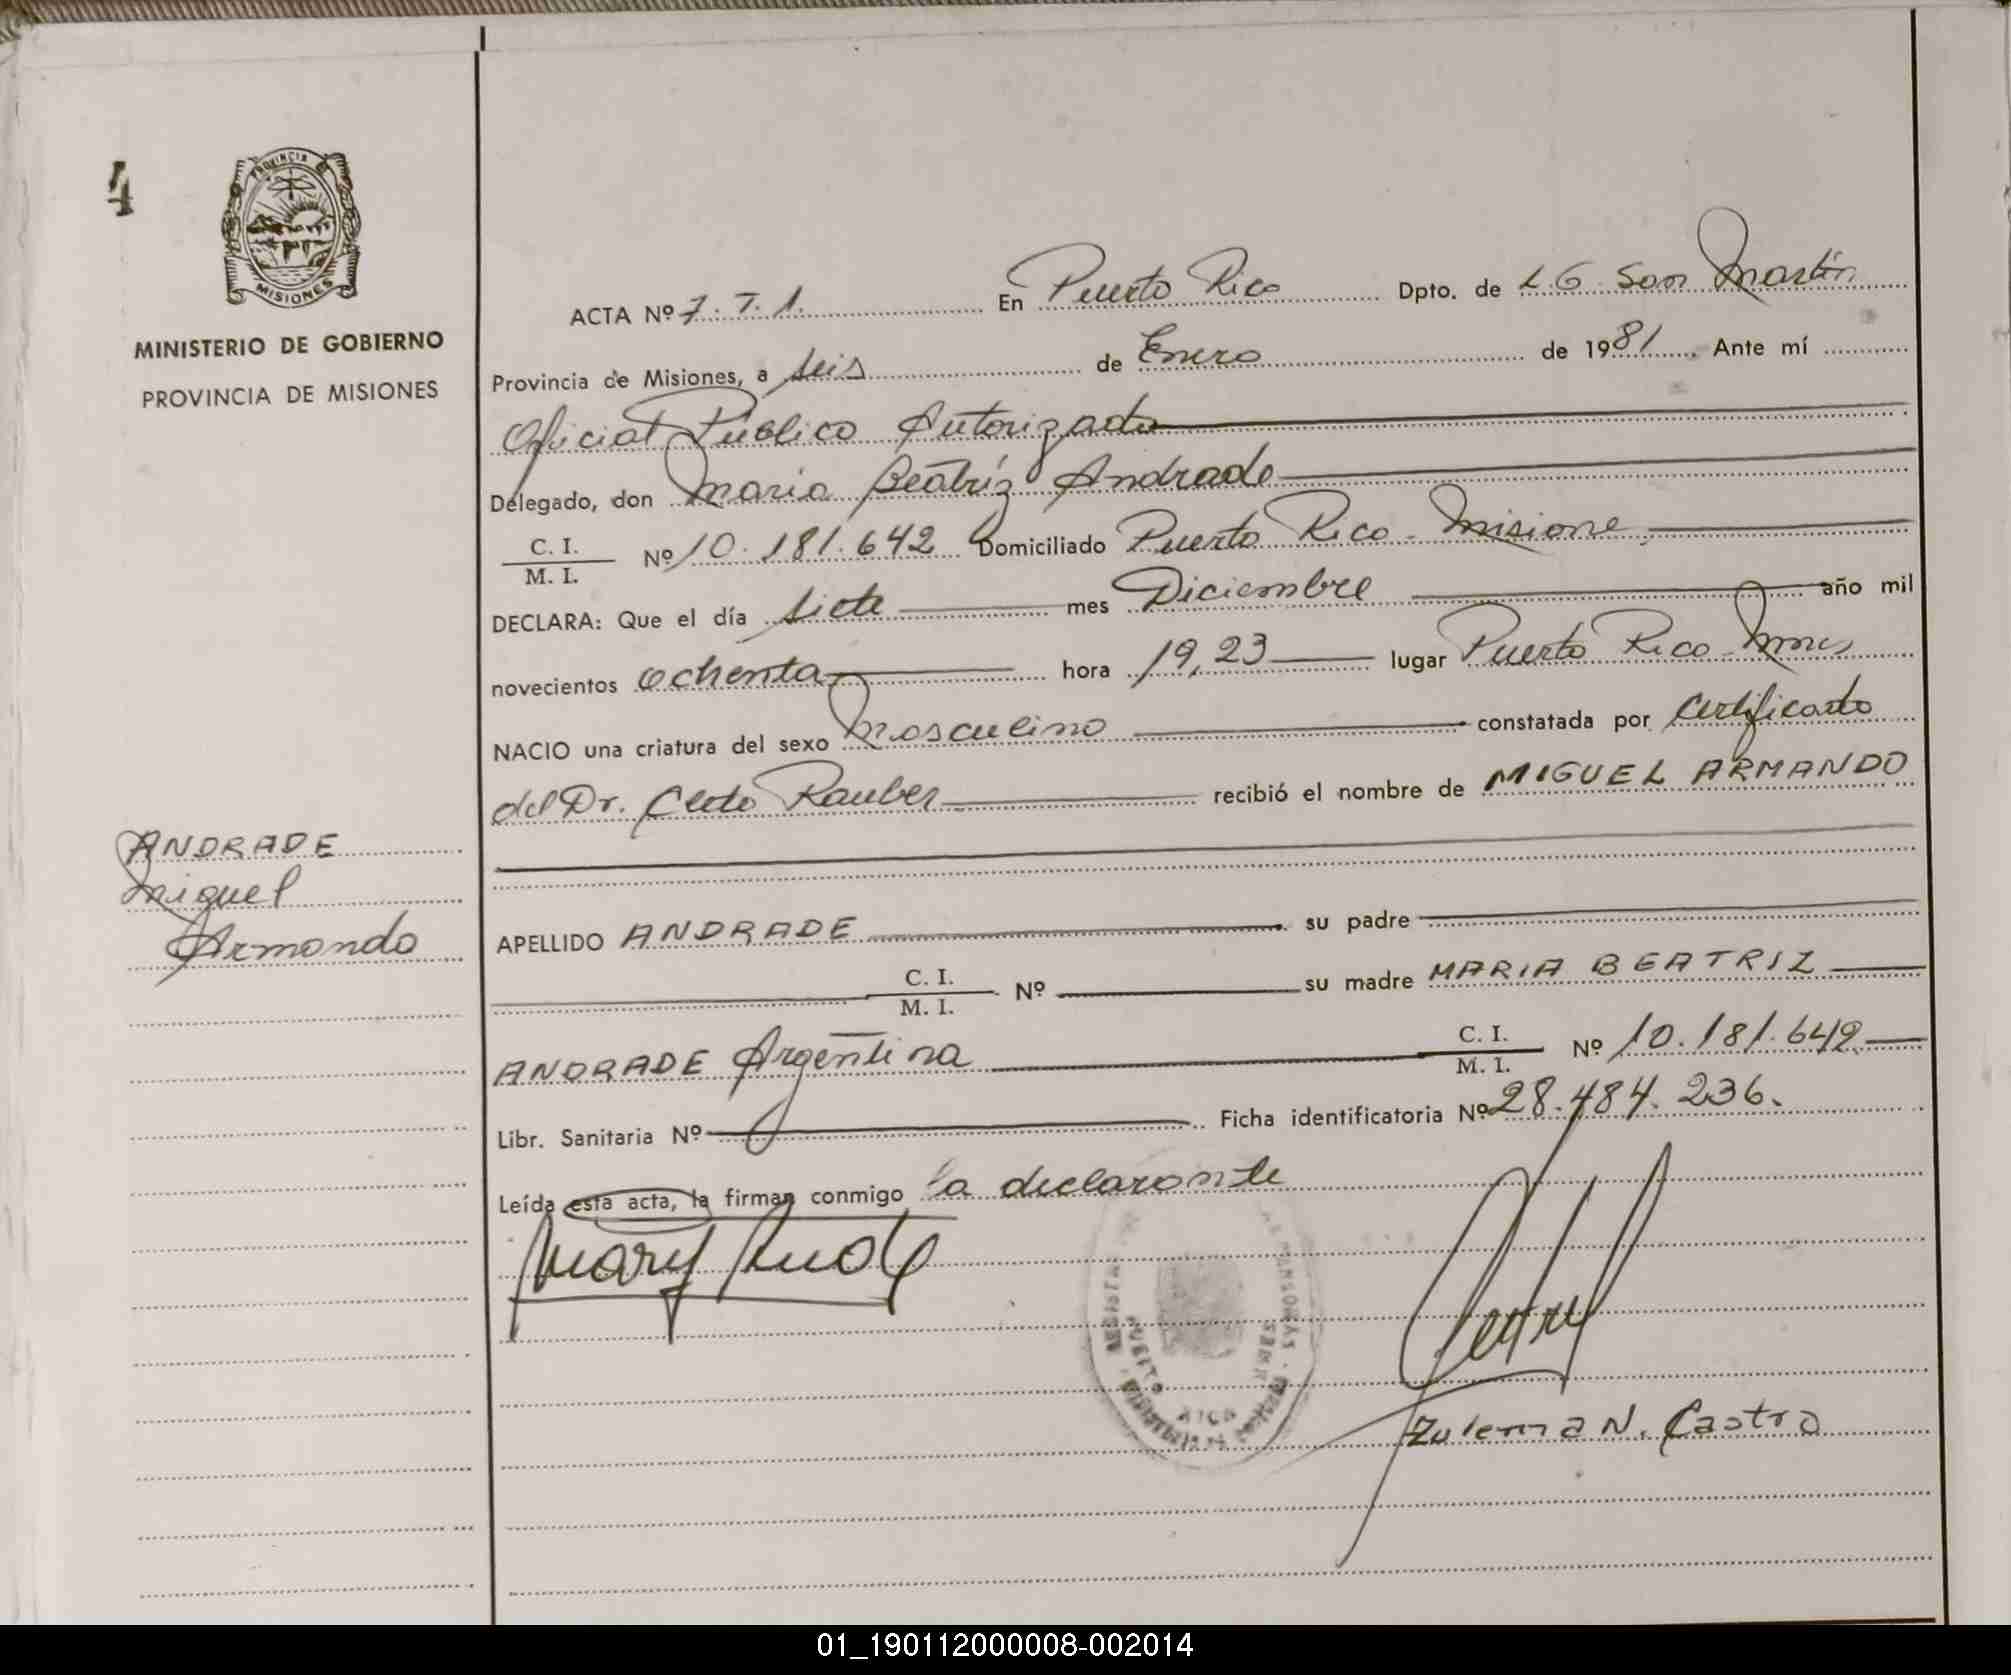 4
PROVINCIA DE
MISIONES
MINISTERIO DE GOBIERNO
PROVINCIA DE MISIONES
ACTA Nº 7. T. 1. En Puerto Rico Dpto. de L. G. San Martín
Provincia de Misiones, a seis de Enero de 1981. Ante mí
Oficial Público Autorizado
Delegado, don Maria Beatríz Andrade
C. I.
M. I. Nº 10.181.642 Domiciliado Puerto Rico - Misione
DECLARA: Que el día siete mes Diciembre año mil
novecientos ochenta hora 19,23 lugar Puerto Rico Mnes
NACIO una criatura del sexo masculino constatada por Certificado
del Dr. Cleto Rauber recibió el nombre de MIGUEL ARMANDO
ANDRADE
Miguel
Armando
APELLIDO ANDRADE su padre
C. I.
M. I. Nº su madre MARIA BEATRIZ
ANDRADE Argentina C. I.
M. I. Nº 10.181.642
Libr. Sanitaria Nº Ficha identificatoria Nº 28.484.236.
Leída esta acta, la firman conmigo la declarante
Zulema N. Castro
01_190112000008-002014